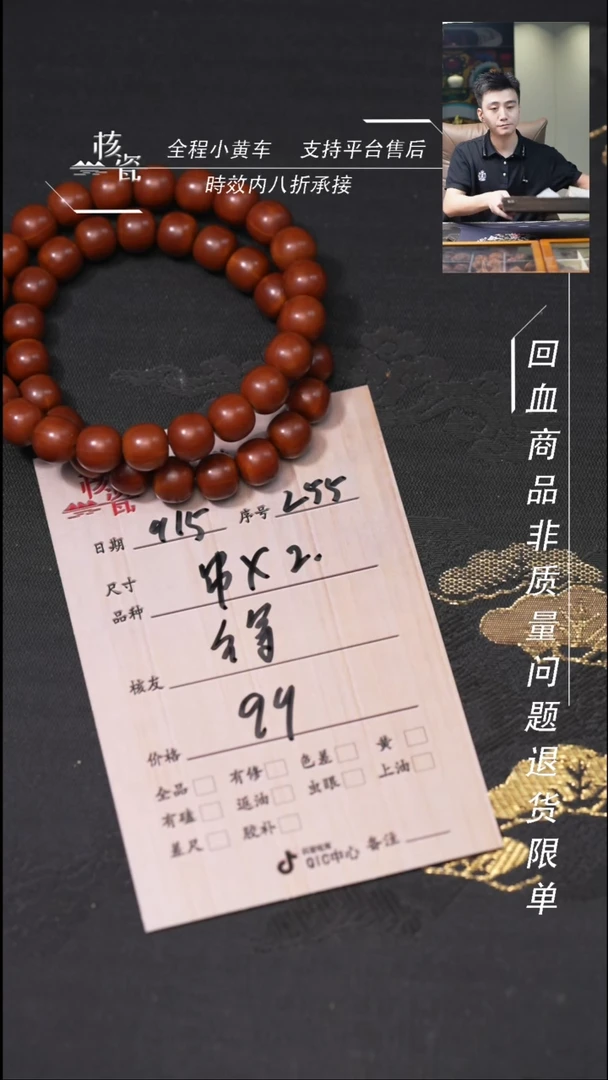 核瓷
全程小黄车 支持平台售后
時效内八折承接
回血商品非质量问题退货限单
核瓷
日期 915 序号 255
尺寸
品种 串X2.
核友
价格 99
全品 有修 色差 黄
有磕 返油 虫眼 上油
差尺 胶补
QIC中心 备注